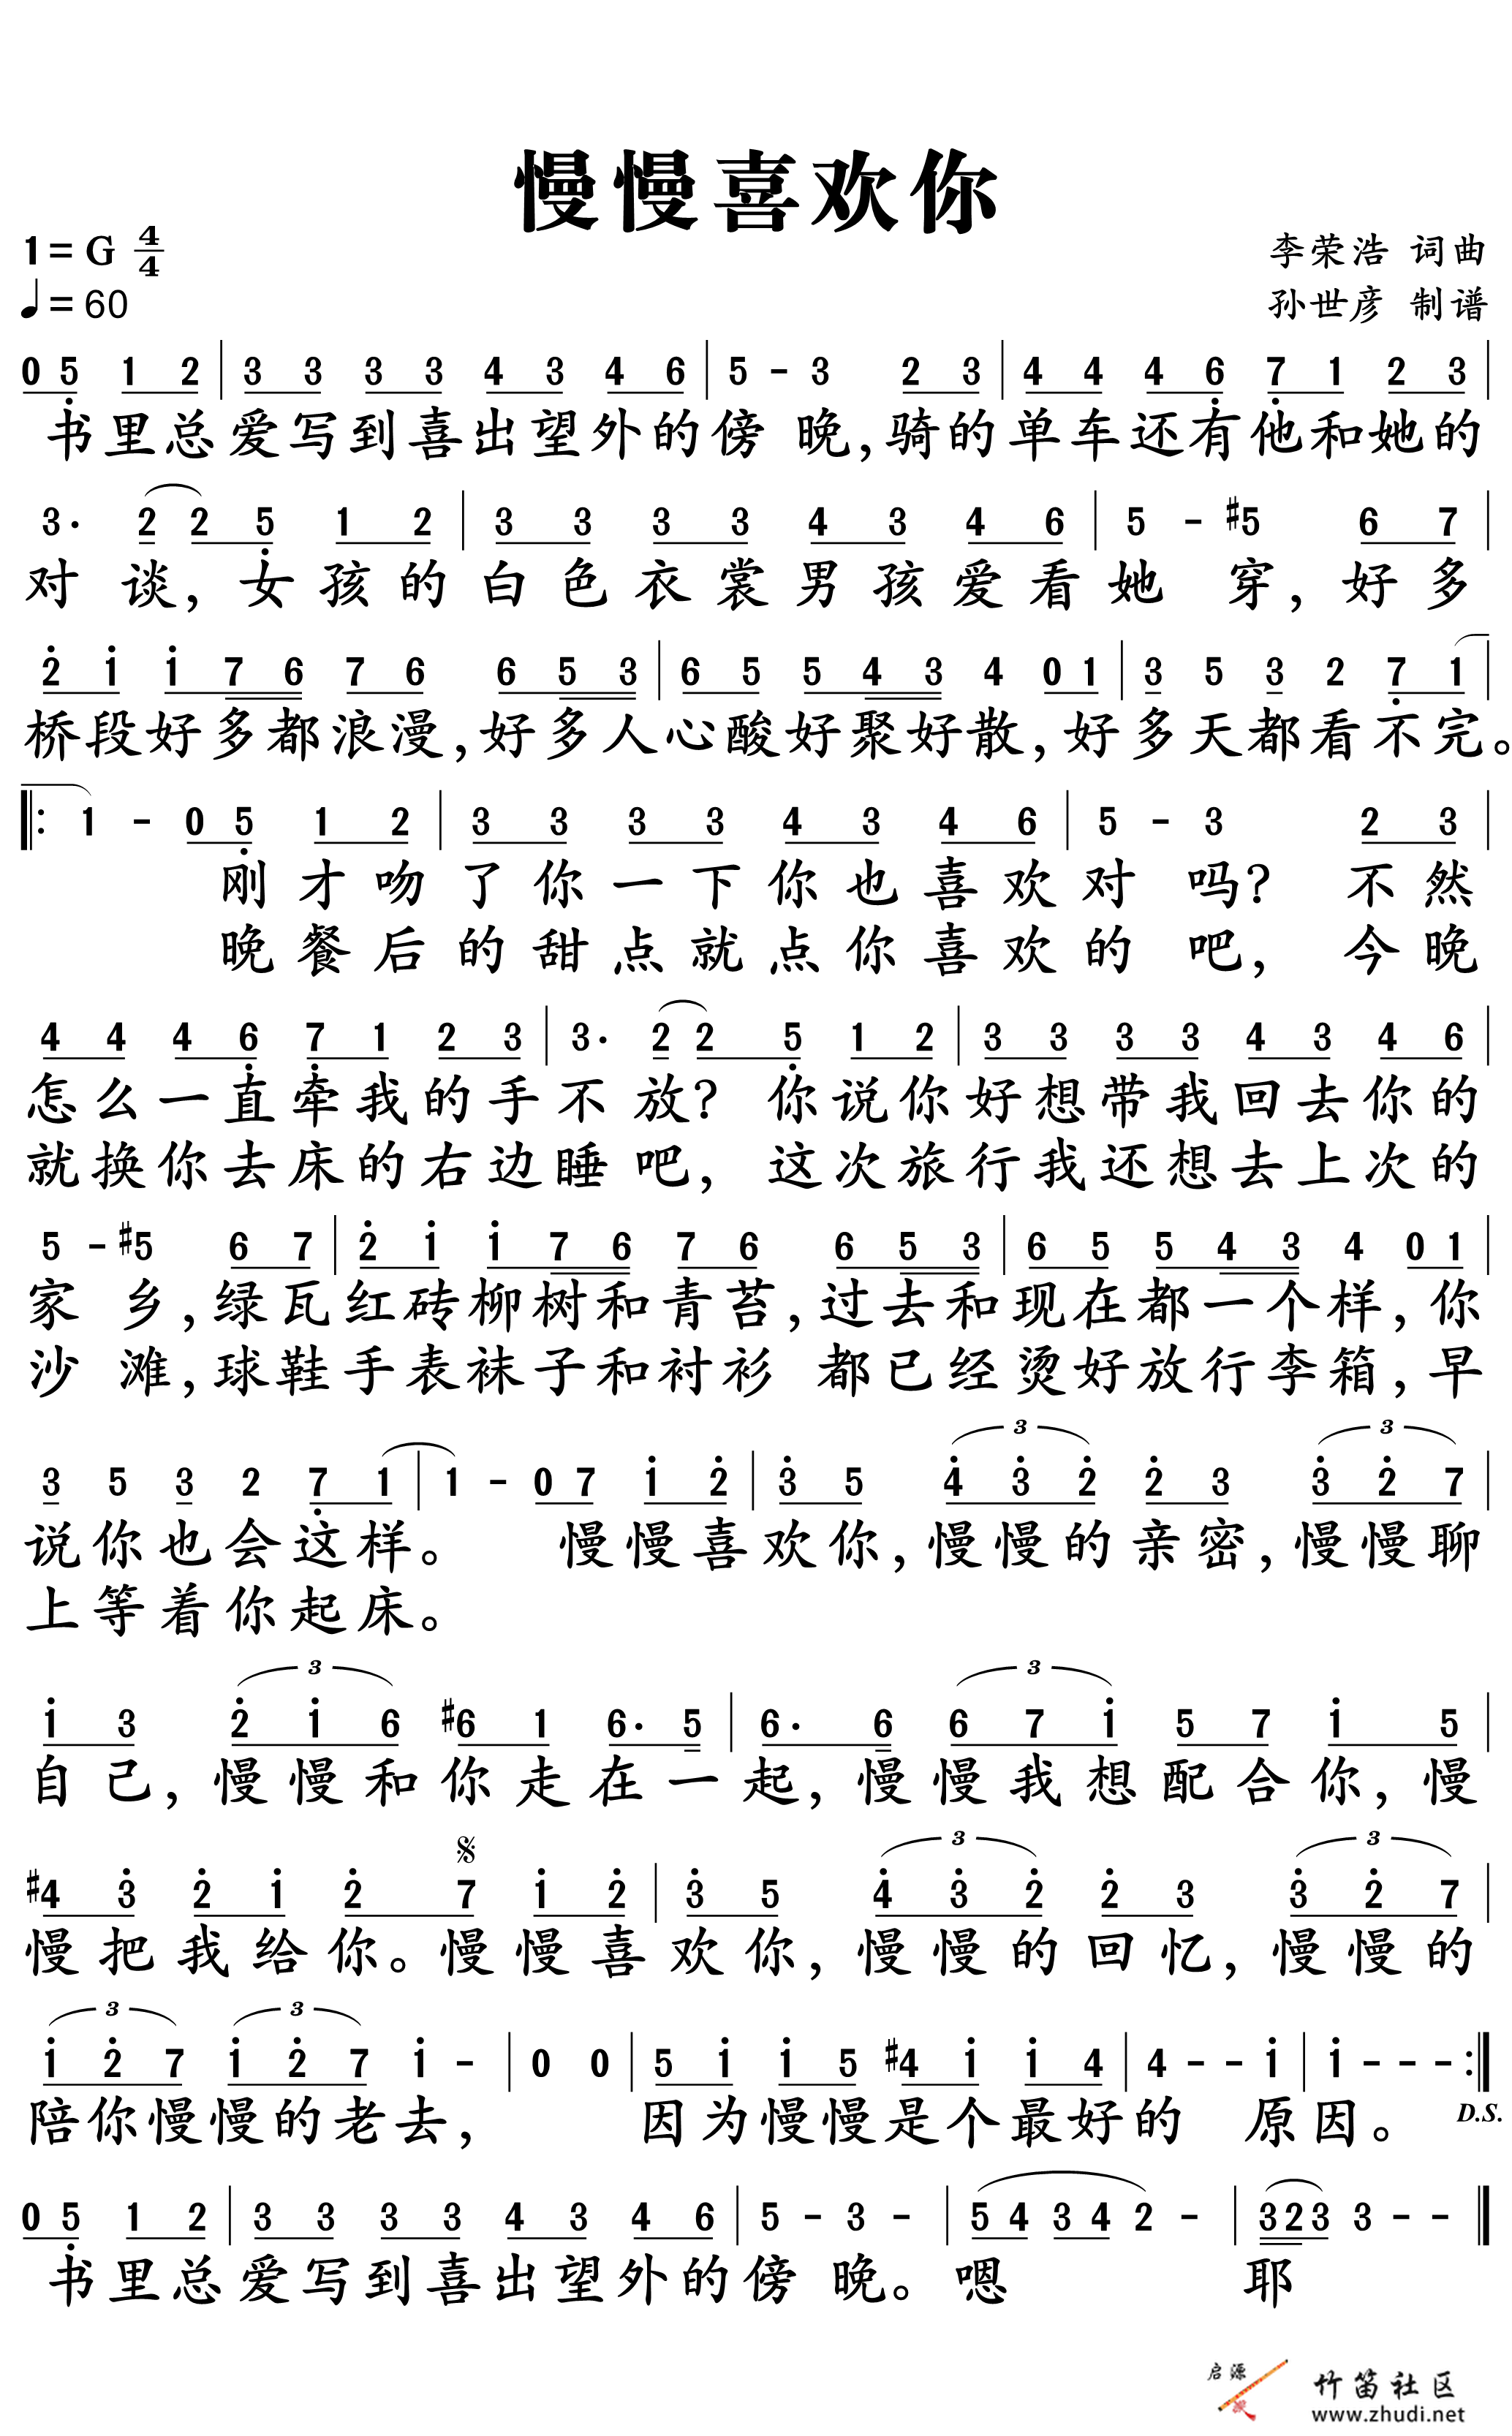 慢慢喜欢你
1=G 4/4
李荣浩 词曲
♩=60
孙世彦 制谱
0 5̣ 1 2 | 3 3 3 3 4 3 4 6 | 5 - 3 2 3 | 4 4 4 6̣ 7̣ 1 2 3 |
书里总爱写到喜出望外的傍晚,骑的单车还有他和她的
3· 2 2 5̣ 1 2 | 3 3 3 3 4 3 4 6 | 5 - #5 6 7 |
对谈,女孩的白色衣裳男孩爱看她穿,好多
2̇ 1̇ 1̇ 7 6 7 6 6 5 3 | 6 5 5 4 3 4 0 1 | 3 5 3 2 7̣ 1 |
桥段好多都浪漫,好多人心酸好聚好散,好多天都看不完。
‖: 1 - 0 5̣ 1 2 | 3 3 3 3 4 3 4 6 | 5 - 3 2 3 |
刚才吻了你一下你也喜欢对吗?不然
晚餐后的甜点就点你喜欢的吧,今晚
4 4 4 6̣ 7̣ 1 2 3 | 3· 2 2 5̣ 1 2 | 3 3 3 3 4 3 4 6 |
怎么一直牵我的手不放?你说你好想带我回去你的
就换你去床的右边睡吧,这次旅行我还想去上次的
5 - #5 6 7 | 2̇ 1̇ 1̇ 7 6 7 6 6 5 3 | 6 5 5 4 3 4 0 1 |
家乡,绿瓦红砖柳树和青苔,过去和现在都一个样,你
沙滩,球鞋手表袜子和衬衫 都已经烫好放行李箱,早
3 5 3 2 7̣ 1 | 1 - 0 7 1̇ 2̇ | 3̇ 5 4̇ 3̇ 2̇ 2̇ 3 3̇ 2̇ 7 |
3 3
说你也会这样。 慢慢喜欢你,慢慢的亲密,慢慢聊
上等着你起床。
1̇ 3 2̇ 1̇ 6 #6 1 6· 5 | 6· 6 6 7 1̇ 5 7 1̇ 5 |
3 3
自己,慢慢和你走在一起,慢慢我想配合你,慢
#4 3̇ 2̇ 1̇ 2̇ 7 1̇ 2̇ | 3̇ 5 4̇ 3̇ 2̇ 2̇ 3 3̇ 2̇ 7 |
𝄋 3 3
慢把我给你。慢慢喜欢你,慢慢的回忆,慢慢的
1̇ 2̇ 7 1̇ 2̇ 7 1̇ - | 0 0 | 5 1̇ 1̇ 5 #4 1̇ 1̇ 4 | 4 - - 1̇ | 1̇ - - - :‖
3 3
陪你慢慢的老去, 因为慢慢是个最好的 原因。 D.S.
0 5̣ 1 2 | 3 3 3 3 4 3 4 6 | 5 - 3 - | 5 4 3 4 2 - | 3 2 3 3 - - ‖
书里总爱写到喜出望外的傍晚。嗯 耶
启源
竹笛社区
www.zhudi.net